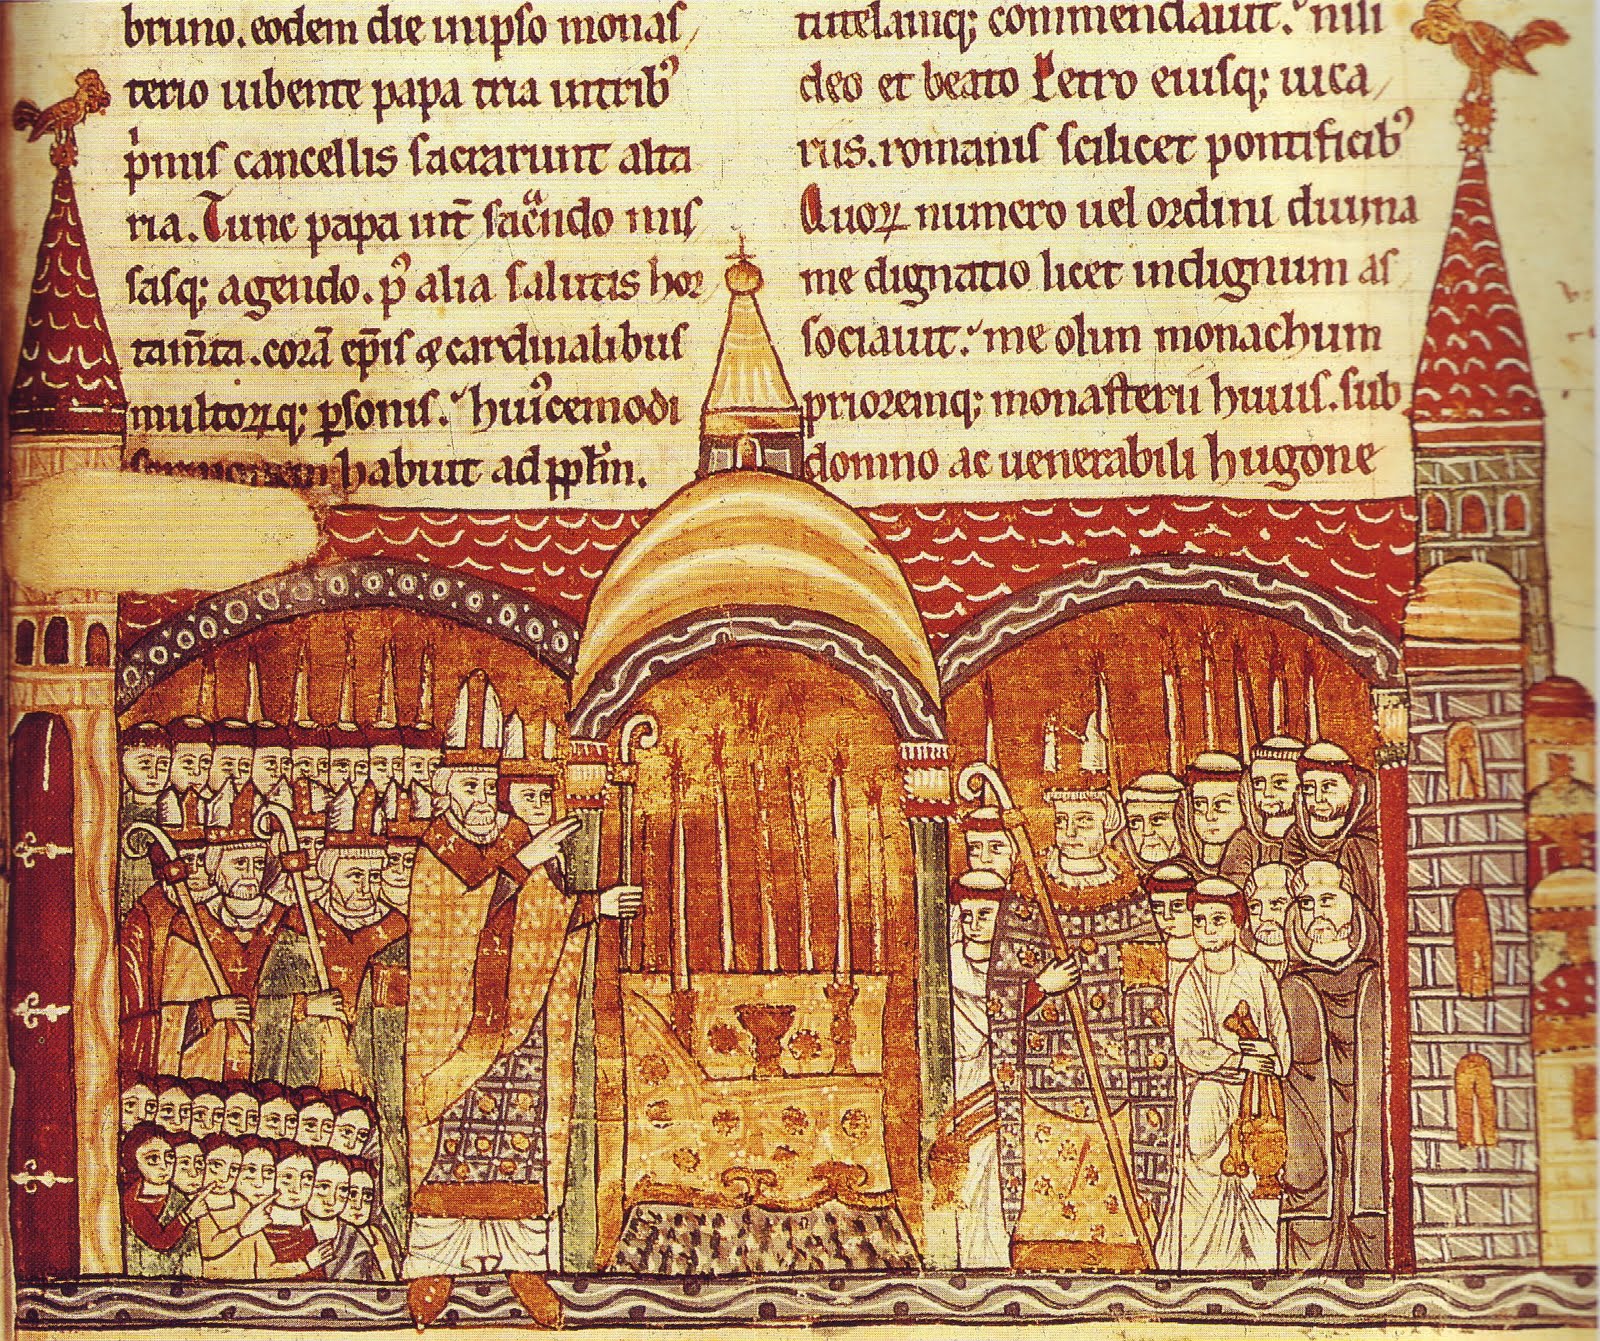 bruno. eodem die in ipso monas/
terio iubente papa tria in trib'
p'mis cancellis sacrarunt alta
ria. Tunc papa int' sac̄ndo mis
sasq; agendo. p' alia salutis hor/
tam̄ta. corā ep̄is & cardinalibus
multoꝝq; ꝑsonis. hui'cemodi
habuit ad pp̄lm.
tutelamq; commendauit. nisi
deo et beato Petro eiusq; uica/
riis. romanis scilicet pontificib'
Quoꝝ numero uel ordini diuina
me dignatio licet indignum as/
sociauit. me olim monachum
prioremq; monasterii huius. sub
domno ac uenerabili hugone